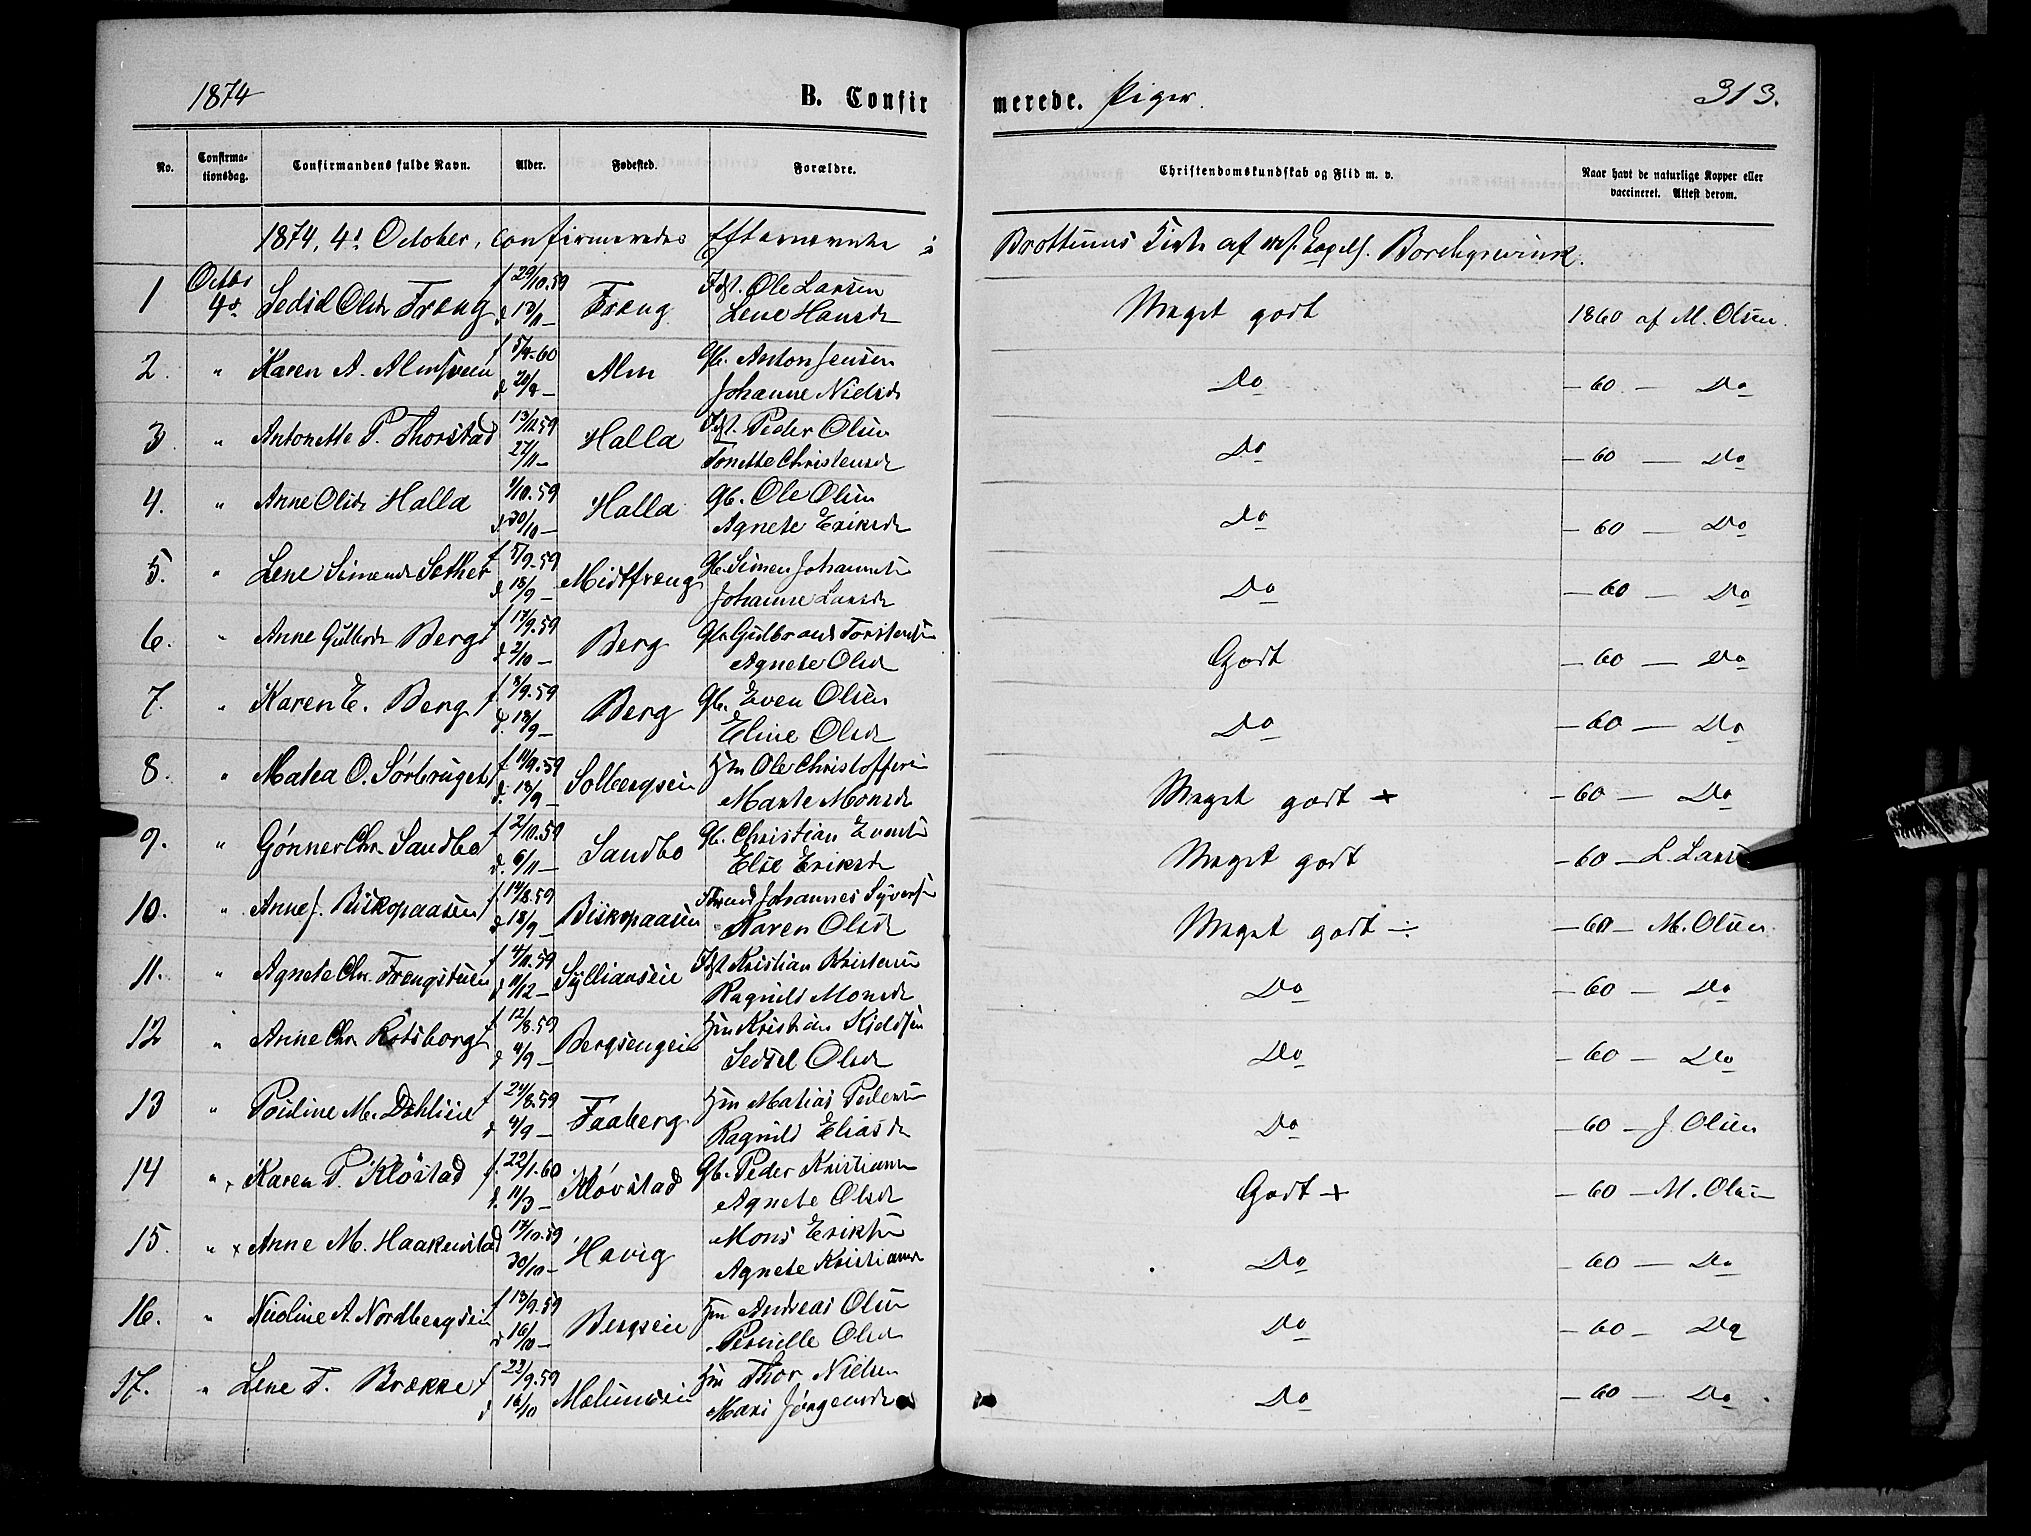 1874 B. Confirmerede. Piger. 313.
No. Confirmationsdag. Confirmandens fulde Navn. Alder. Fødested. Forældre. Christendomskundskab og Flid m. v. Naar havt de naturlige Kopper eller vaccineret. Attest derom.
1874, 4d October, confirmeredes Efternævnte i Brøttums Kirke af Borchgrevink.
1 Octbr 4d Sedsel Olsdr Freng f 29/10.59 d 13/11 — Freng Ole Larsen Lene Hansdr Meget godt 1860 af M. Olsen.
2. " Karen A. Almsveen f 5/4-60 Alm Gb. Anton Jensen Johanne Nielsdr Do — 60 — Do
3 " Antonette P. Thorstad 13/10.59 27/11 — Halla Peder Olsen Tonette Christensdr Do — 60 — Do
4. " Anne Olsdr Halla 9/10.59 d. 30/10 — Halla Gb. Ole Olsen Agnete Eriksdr Do — 60 — Do
5. " Lene Simensdr Sether f 5/9.59 d 18/9 — Midtfreng Gb. Simen Johannesen Johanne Larsdr Do — 60 — Do
6. " Anne Gulbrdr Berg f 17/9.59 d 2/10 — Berg Gb. Gudbrand Torstensen Agnete Olsdr Godt — 60 — Do
7. " Karen E. Berg f. 3/9.59 d. 18/9 — Berg Gb. Even Olsen Eline Olsdr Do — 60 — Do
8. " Matea O. Sørbruget f 14/9.59 d. 18/9 — Solbergseie Hm Ole Christoffersen Marte Monsdr Meget godt + — 60 — Do
9. " Gønner Chr. Sandbo f. 2/10.59 d. 6/11 — Sandbo Gb. Christian Evensen Else Eriksdr Meget godt — 60 — L. Larsen
10. " Anne J. Biskopaasen f. 14/8.59 d 18/9 — Biskopaasen Johannes Syversen Karen Olsdr Meget godt ÷ — 60 — M. Olsen
11. " Agnete Chr. Frengstuen f 4/11.59 d 11/12 — Sylliaaseie Kristian Kristensen Ragnild Monsdr Do — 60 — Do
12 " Anne Chr. Rotsborg f. 12/8.59 d 4/9 — Bergsengeie Hm Kristian Kjeldsen Sedsel Olsdr Do — 60 — Do
13 " Pouline M. Dahlseie f. 24/8.59 d 4/9 — Faaberg Hm Matias Pedersen Ragnild Eliasdr Do — 60 — J. Olsen
14 " × Karen P. Kløstad f. 22/1.60 d. 11/3 — Kløvstad Gb. Peder Kristiansen Agnete Olsdr Godt + — 60 — M. Olsen
15. " × Anne M. Haakenstad 30/10 — Havig Mons Eriksen Agnete Kristiansdr Do — 60 — Do
16. " Nicoline A. Nordbergseie f 13/9.59 d 16/10 — Bergseie Hm Andreas Olsen Pernille Olsdr Do — 60 — Do
17. " Lene T. Brække f. 23/9.59 d 16/10 Hm Thor Nielsen Mari Jørgensdr Do — 60 — Do